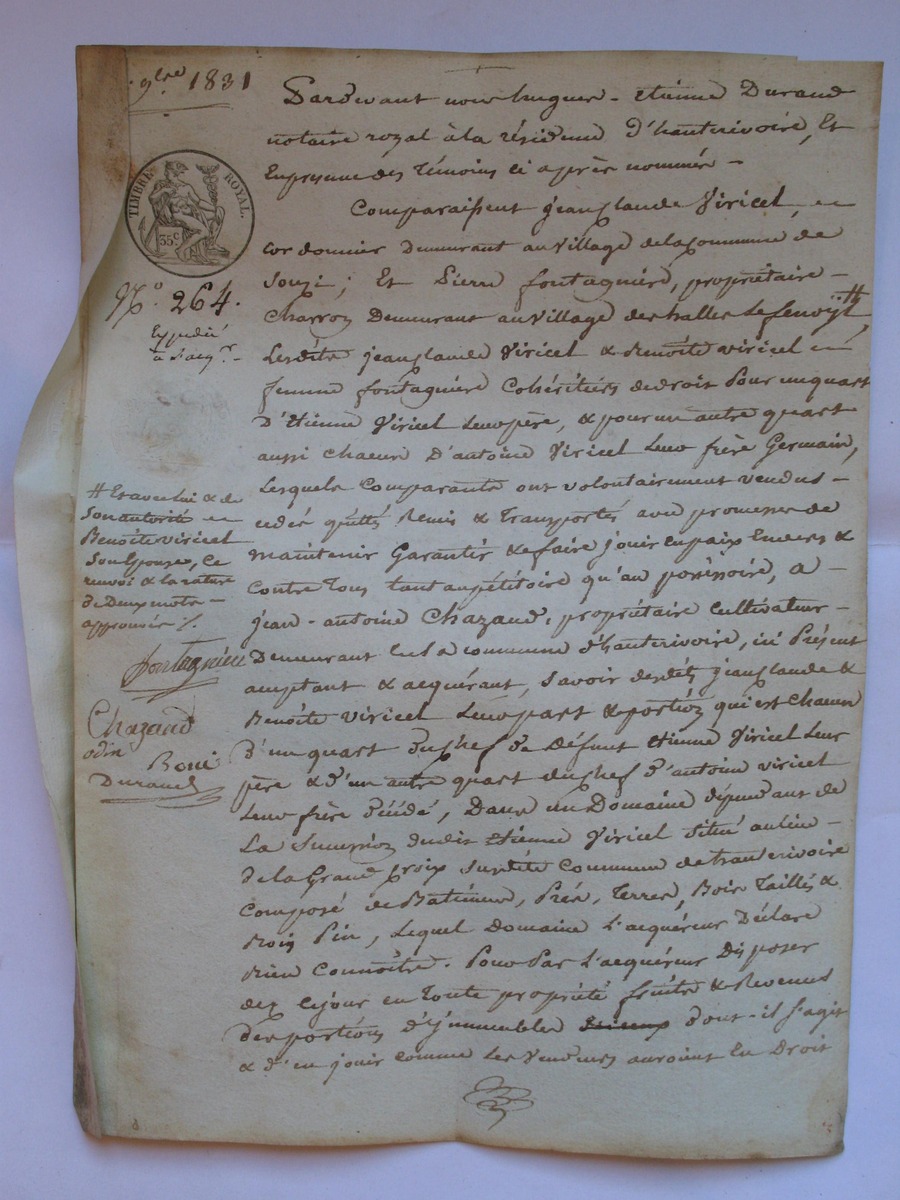 9bre 1831
TIMBRE ROYAL.
35c
No. 264.
Expédié
à l'acqr.
Pardevant nous hugues-etienne Durand
notaire royal à la résidence d'hauterivoire, Et
En presence des Témoins ci après nommés-
Comparaissent jean claude Viricel,
cordonnier Demeurant au village de la commune de
Souzi; Et Pierre fontagnière, propriétaire-
Charron Demeurant au village des halles Le fenoÿl #,
Lesdits jean claude Viricel & Benoîte viricel
femme fontagnière Cohéritiers de droit Pour un quart
D'Etienne Viricel Leur père, & pour un autre quart
aussi chacun D'antoine Viricel Leur frère Germain,
Lesquels Comparants ont volontairement vendus-
cédés quittés Remis & Transportés avec promesse de
maintenir Garantir & faire jouir en paix Envers &
Contre Tous tant au pétitoire qu'au possessoire, a-
jean-antoine Chazaud, propriétaire cultivateur-
Demeurant En la commune d'hauterivoire, ici Présent
acceptant & acquérant, savoir desdits jean claude &
Benoîte viricel Leur part & portion qui est chacun
d'un quart du chef de défunt etienne Viricel Leur
père & d'un autre quart du chef d'antoine viricel
Leur frère décédé, Dans un Domaine dépendant de
La Succession dudit etienne Viricel situé au lieu-
de la Grand croix susdite commune de hauterivoire
composé de Bâtiments, Prés, Terres, Bois Taillis &
Bois Pin, Lequel Domaine L'acquéreur Déclare
Bien Connoître. Pour Par L'acquéreur Disposer
dez ce jour en toute propriété fruits & Revenus
Des portions d'ymmeubles dont-il s'agit
& d'en jouir comme Les Vendeurs auroient Eu Droit
# Et avec lui & de
son autorité
Benoîte viricel
son Epouse, Ce
renvoi & la rature
de Deux mots-
approuvés /.
fontagnière
Chazaud
odin Boni
Durand